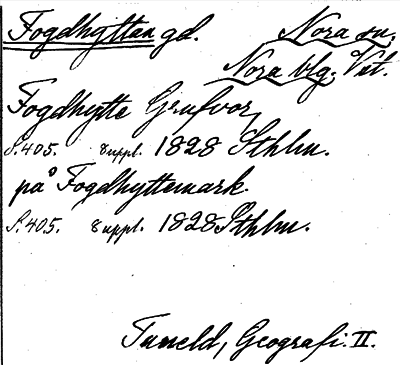 Fogdhyttan gd. Nora sn.
Nora blg. Vstl.
Fogdhytte Grufvor,
S. 405. 8 uppl. 1828 Sthlm.
på Fogdhyttemark.
S. 405. 8 uppl. 1828 Sthlm.
Tuneld, Geografi. II.